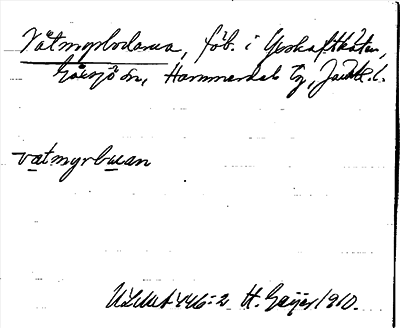 Vätmyrbodarna, fäb. i Yxskaftkälen,
Gåxsjö sn, Hammerdals tg, Jämtl. l.
vätmyrbuan
ULMA 446:2 H. Geijer 1910.